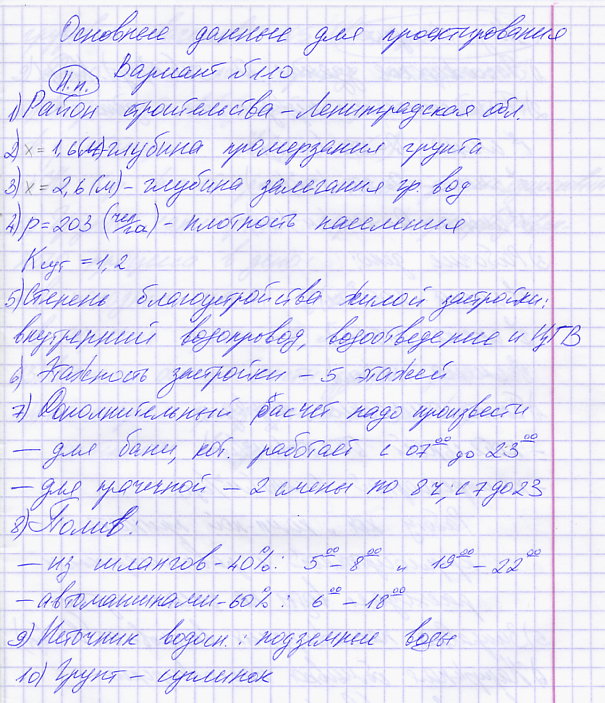 Основные данные для проектирования
Вариант №110
Н.п.
1) Район строительства – Ленинградская обл.
2) x = 1,6 (м) – глубина промерзания грунта
3) x = 2,6 (м) – глубина залегания гр. вод
4) p = 203 (чел/га) – плотность населения
Kсут = 1,2
5) Степень благоустройства жилой застройки:
внутренний водопровод, водоотведение и ЦГВ
6) Этажность застройки – 5 этажей
7) Дополнительный расчёт надо произвести
– для бани, кот. работает с 07⁰⁰ до 23⁰⁰
– для прачечной – 2 смены по 8 ч; с 7 до 23
8) Полив:
– из шлангов – 40%: 5⁰⁰ – 8⁰⁰ и 19⁰⁰ – 22⁰⁰
– автомашинами – 60%: 6⁰⁰ – 18⁰⁰
9) Источник водосн.: подземные воды
10) Грунт – суглинок